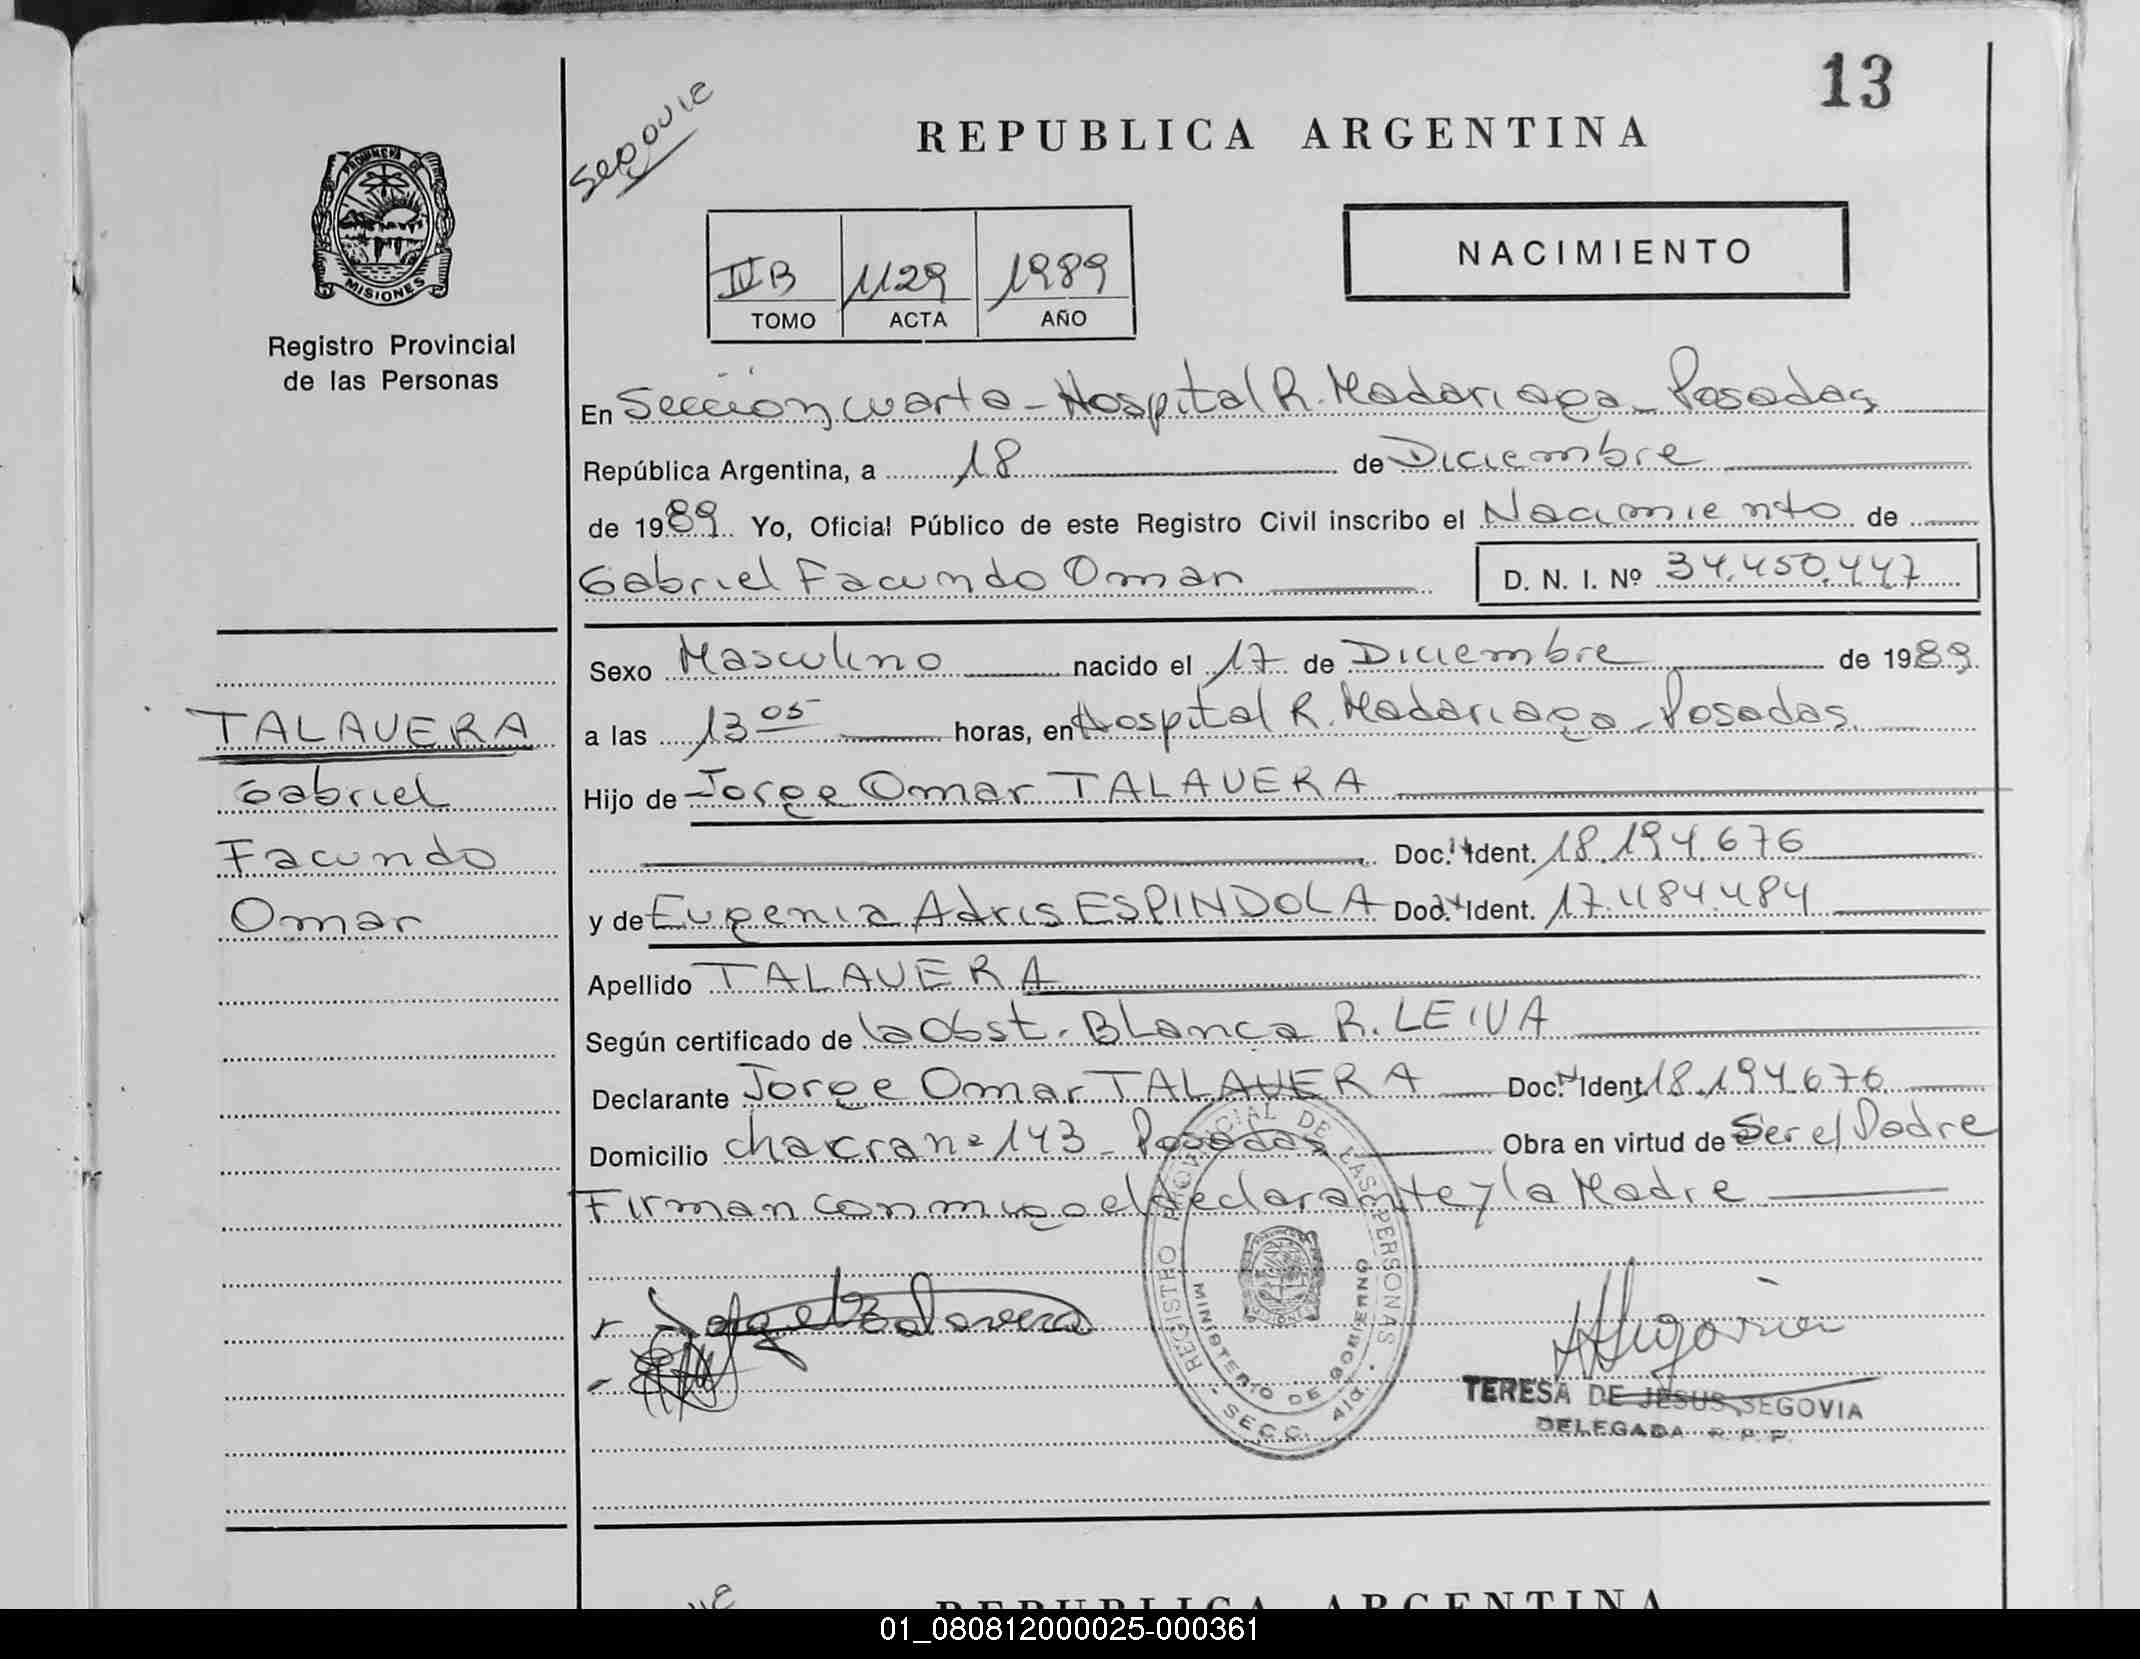 13
Segovie
REPUBLICA ARGENTINA
PROVINCIA DE
MISIONES
NACIMIENTO
IVB 1129 1989
TOMO ACTA AÑO
Registro Provincial
de las Personas
En Sección cuarta - Hospital R. Madariaga - Posadas
República Argentina, a 18 de Diciembre
de 1989 Yo, Oficial Público de este Registro Civil inscribo el Nacimiento de
Gabriel Facundo Omar D. N. I. Nº 34.450.447
Sexo Masculino nacido el 17 de Diciembre de 1989
a las 13 05 horas, en Hospital R. Madariaga - Posadas.
Hijo de Jorge Omar TALAVERA
Doc. Ident. 18.194.676
y de Eugenia Adris ESPINDOLA Doc. Ident. 17.484.484
Apellido TALAVERA
Según certificado de la Obst. Blanca R. LEIVA
Declarante Jorge Omar TALAVERA Doc. Ident. 18.194.676
Domicilio chacra nº 143 - Posadas Obra en virtud de Ser el Padre
Firman conmigo el declarante y la Madre
TALAVERA
Gabriel
Facundo
Omar
REGISTRO PROVINCIAL DE LAS PERSONAS
MINISTERIO DE GOBIERNO
SECC. 4ta.
TERESA DE JESUS SEGOVIA
DELEGADA R. P. P.
REPUBLICA ARGENTINA
01_080812000025-000361